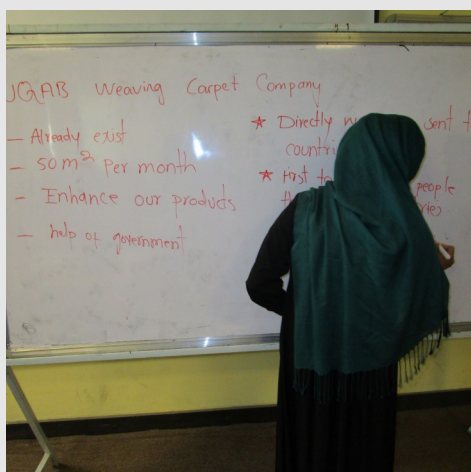 UQAB Weaving Carpet Company
– Already exist
– 50 m² per month
– Enhance our products
– help of government
★ Directly sent
★ first people